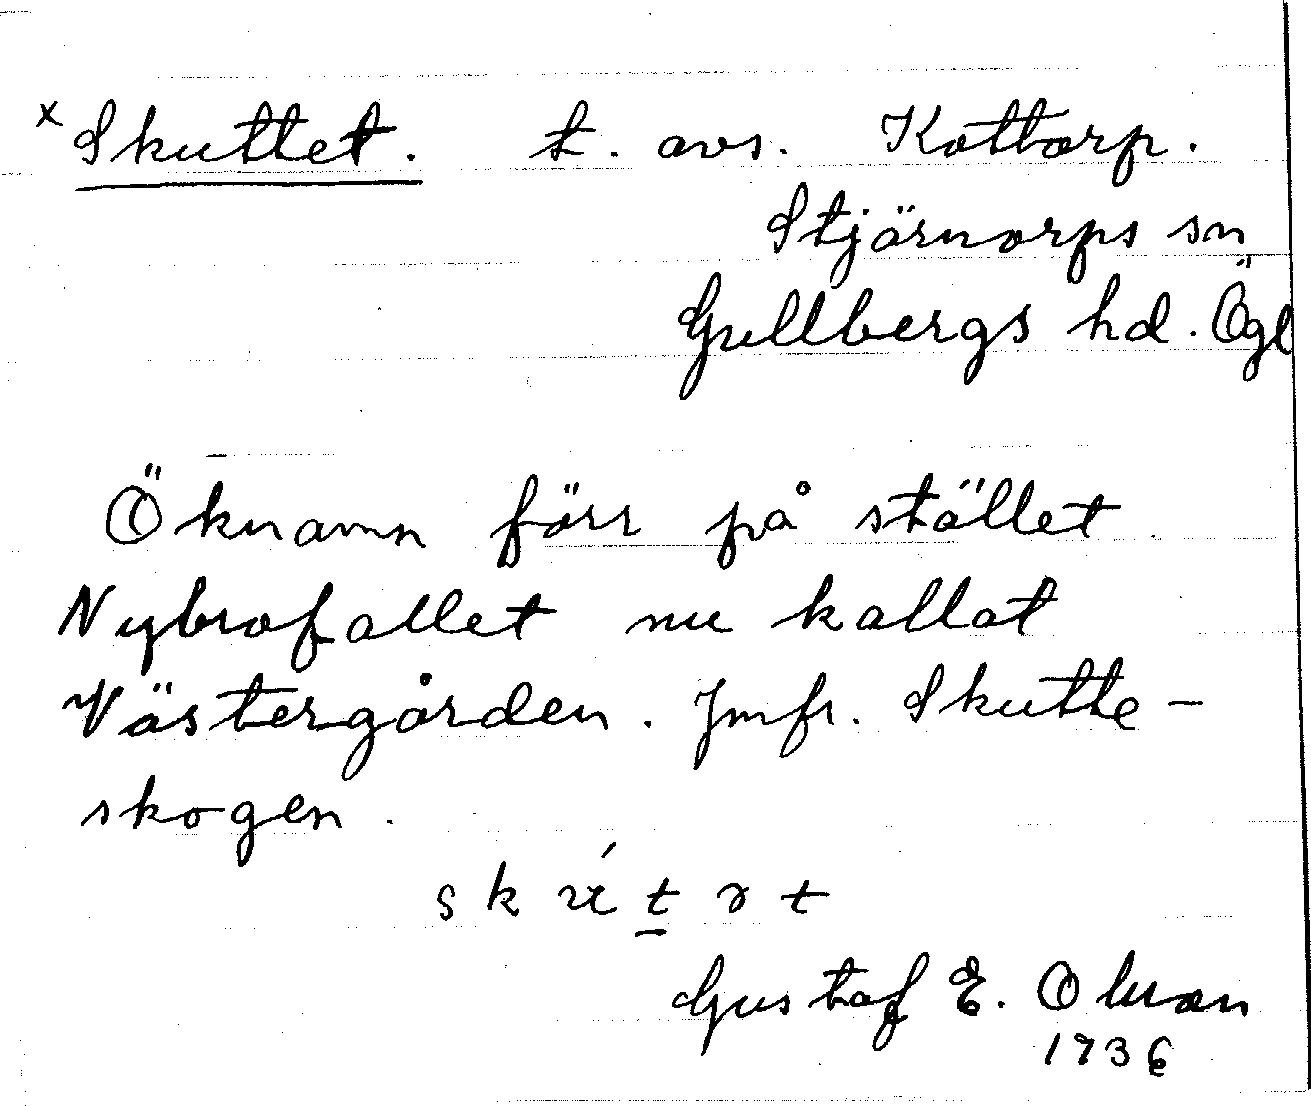 x Skuttet. t. avs. Kottorp.
Stjärnorps sn
Gullbergs hd. Ögl
Öknamn förr på stället
Nybrofallet nu kallat
Västergården. Jmfr. Skutte-
skogen.
Gustaf E. Olsson
1936